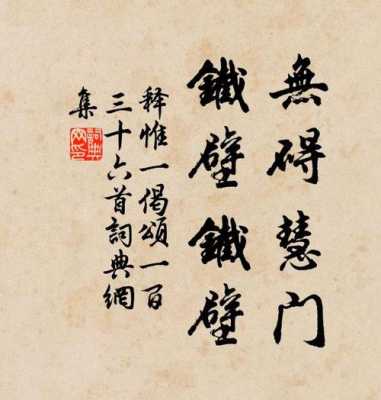 無碍慧门
鐵壁鐵壁
释惟一偈頌一百
三十六首詞典網
集